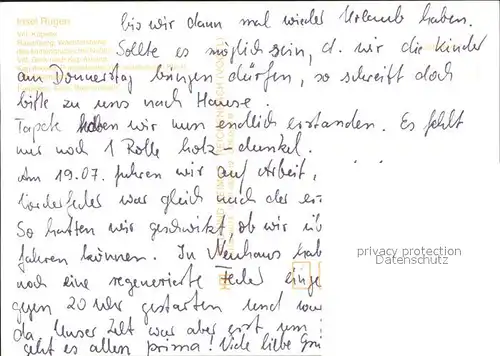 Insel Rügen
bis wir dann mal wieder Urlaub haben.
Sollte es möglich sein, d. wir die Kinder
am Donnerstag bringen dürfen, so schreibt doch
bitte zu uns nach Hause.
Tapete haben wir nun endlich erstanden. Es fehlt
nur noch 1 Rolle holz-dunkel.
Am 19.07. fuhren wir auf Arbeit,
Vorderfeder war gleich nach der
So hatten wir geschwitzt, ob wir
fahren können. In Neuhaus hab
noch eine regenerierte Feder einge
gegen 20 Uhr gestarten und
da. Unser Zelt war aber erst um
geht es allen prima! Viele liebe Grü
privacy protection
Datenschutz